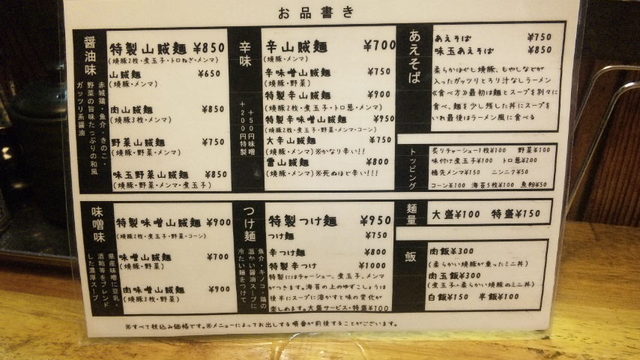 お品書き
醤油味
赤城鶏・魚介・きのこ・
野菜の旨味たっぷりの和風
ガッツリ系醤油
特製山賊麺 ¥850
(焼豚2枚・煮玉子・トロねぎ・メンマ)
山賊麺 ¥650
(焼豚・メンマ)
肉山賊麺 ¥850
(焼豚3枚・メンマ)
野菜山賊麺 ¥750
(焼豚・野菜・メンマ)
味玉野菜山賊麺 ¥850
(焼豚・野菜・メンマ・煮玉子)
辛味
+50円味噌
+200円特製
辛山賊麺 ¥700
(焼豚・メンマ)
辛味噌山賊麺 ¥750
(焼豚・野菜)
特製辛山賊麺 ¥900
(焼豚2枚・煮玉子・トロ葱・メンマ)
特製辛味噌山賊麺 ¥950
(焼豚2枚・煮玉子・野菜・メンマ・コーン)
大辛山賊麺 ¥750
(焼豚・メンマ)※かなり辛い!!
雷山賊麺 ¥800
(焼豚・メンマ)※死ぬほど辛い!!!
あえそば
あえそば ¥750
味玉あえそば ¥850
柔らかほぐし焼豚、もやしなどが
入ったガッツリとろり汁なしラーメン
≪食べ方≫最初は麺とスープを別々に
食べ、麺を少し残した丼にスープを
いれ最後はラーメン風に食べる
トッピング
炙りチャーシュー1枚¥100 野菜¥100
味付け煮玉子¥100 トロ葱¥200
穂先メンマ¥150 ニンニク¥50
コーン¥100 海苔5枚¥100 魚粉¥50
麺量
大盛¥100 特盛¥150
飯
肉飯¥300
(柔らかい焼豚が乗ったミニ丼)
肉玉飯¥300
(煮玉子+柔らかい焼豚のミニ丼)
白飯¥150 半飯¥100
味噌味
特製味噌山賊麺 ¥900
(焼豚2枚・煮玉子・野菜・コーン)
味噌山賊麺 ¥700
(焼豚・野菜)
肉味噌山賊麺 ¥900
(焼豚3枚・野菜)
つけ麺
魚介・キノコ・鶏の
温かい醤油スープに
冷たい麺をつけて
特製つけ麺 ¥950
つけ麺 ¥750
辛つけ麺 ¥800
特製辛つけ ¥1000
特製にはチャーシュー、煮玉子、メンマ
がつきます。海苔の上のゆずこしょうは
後半にスープに溶かすと味の変化が
楽しめます。大盛サービス・特盛¥100
※すべて税込み価格です。※メニューによってお出しする順番が前後することがございます。